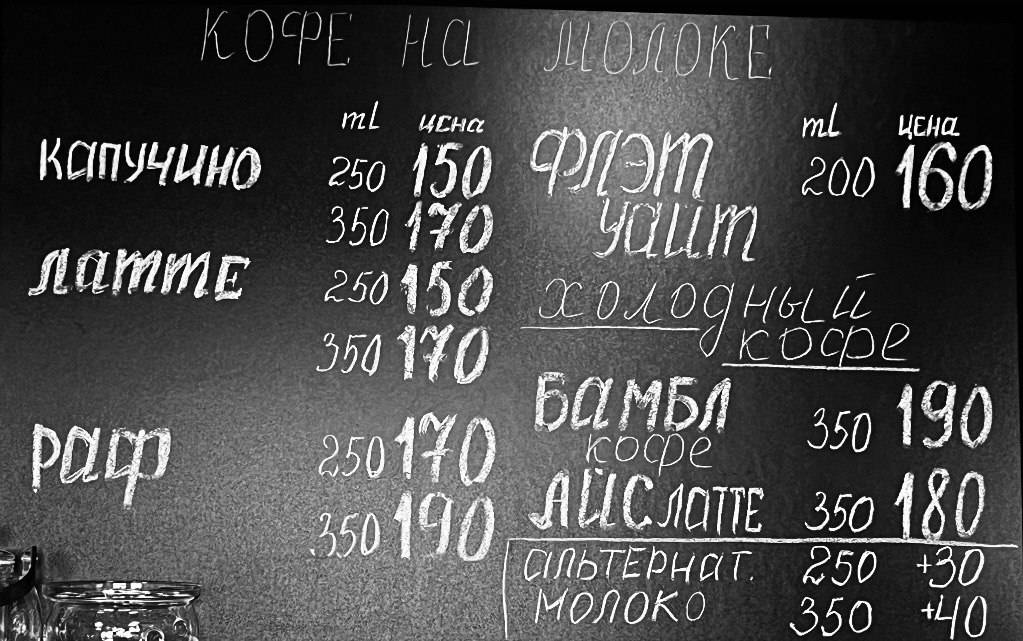 КОФЕ НА МОЛОКЕ
mL цена
КАПУЧИНО 250 150
350 170
ЛАТТЕ 250 150
350 170
РАФ 250 170
350 190
mL цена
ФЛЭТ 200 160
УАЙТ
ХОЛОДНЫЙ
КОФЕ
БАМБЛ 350 190
кофе
АЙС ЛАТТЕ 350 180
АЛЬТЕРНАТ. 250 +30
МОЛОКО 350 +40